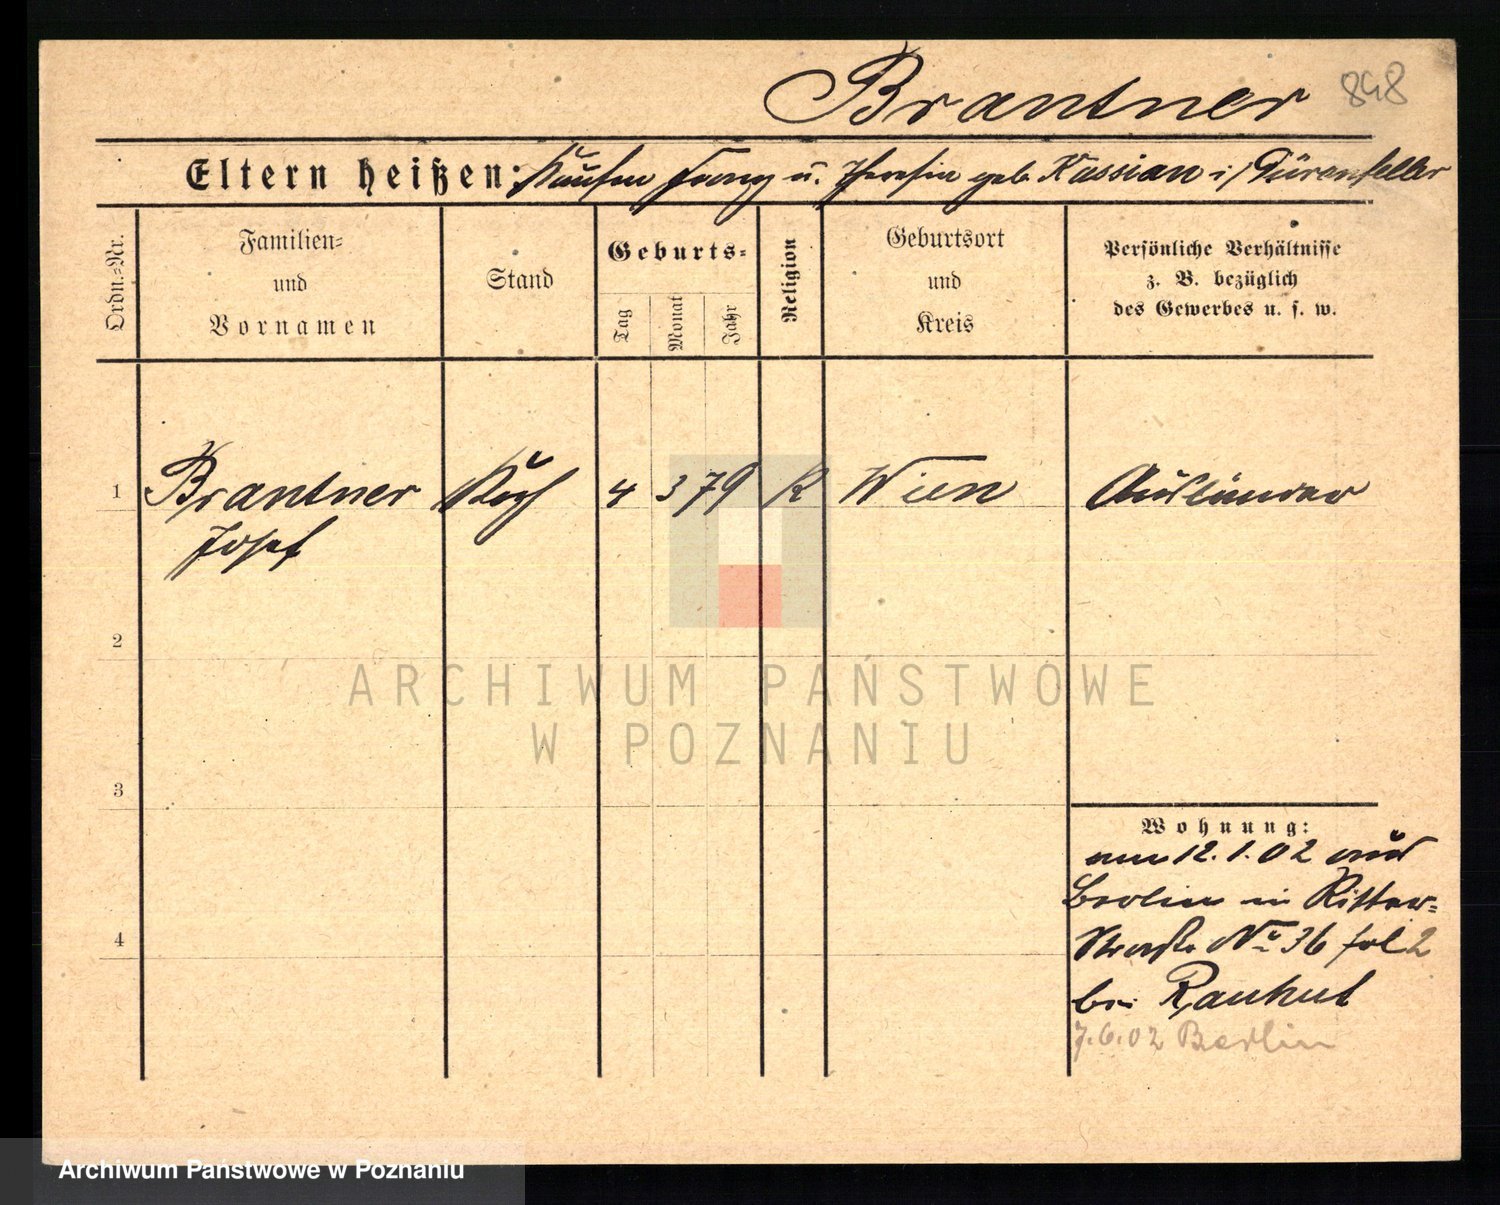 Brantner 848
Eltern heißen: Franz u. Theresia geb. Kassian i/
Ordn.=Nr.
Familien=
und
Vornamen
Stand
Geburts=
Tag
Monat
Jahr
Religion
Geburtsort
und
Kreis
Persönliche Verhältnisse
z. B. bezüglich
des Gewerbes u. s. w.
1 Brantner Koch 4 3 79 K Wien Ausländer
Josef
2
3
4
Wohnung:
am 12.1.02 aus
Berlin in Ritter=
Straße No 36 fol 2
bei Rauhut
7.6.02 Berlin
ARCHIWUM PAŃSTWOWE
W POZNANIU
Archiwum Państwowe w Poznaniu